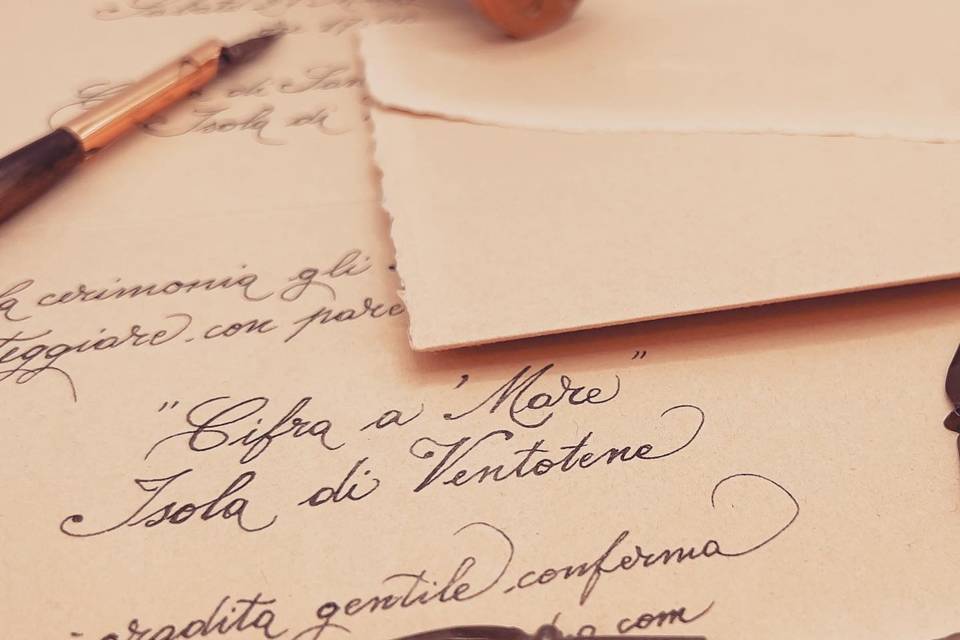 di San
Isola di
la cerimonia gli
teggiare con pare
"Cifra a 'Mare"
Isola di Ventotene
gradita gentile conferma
com